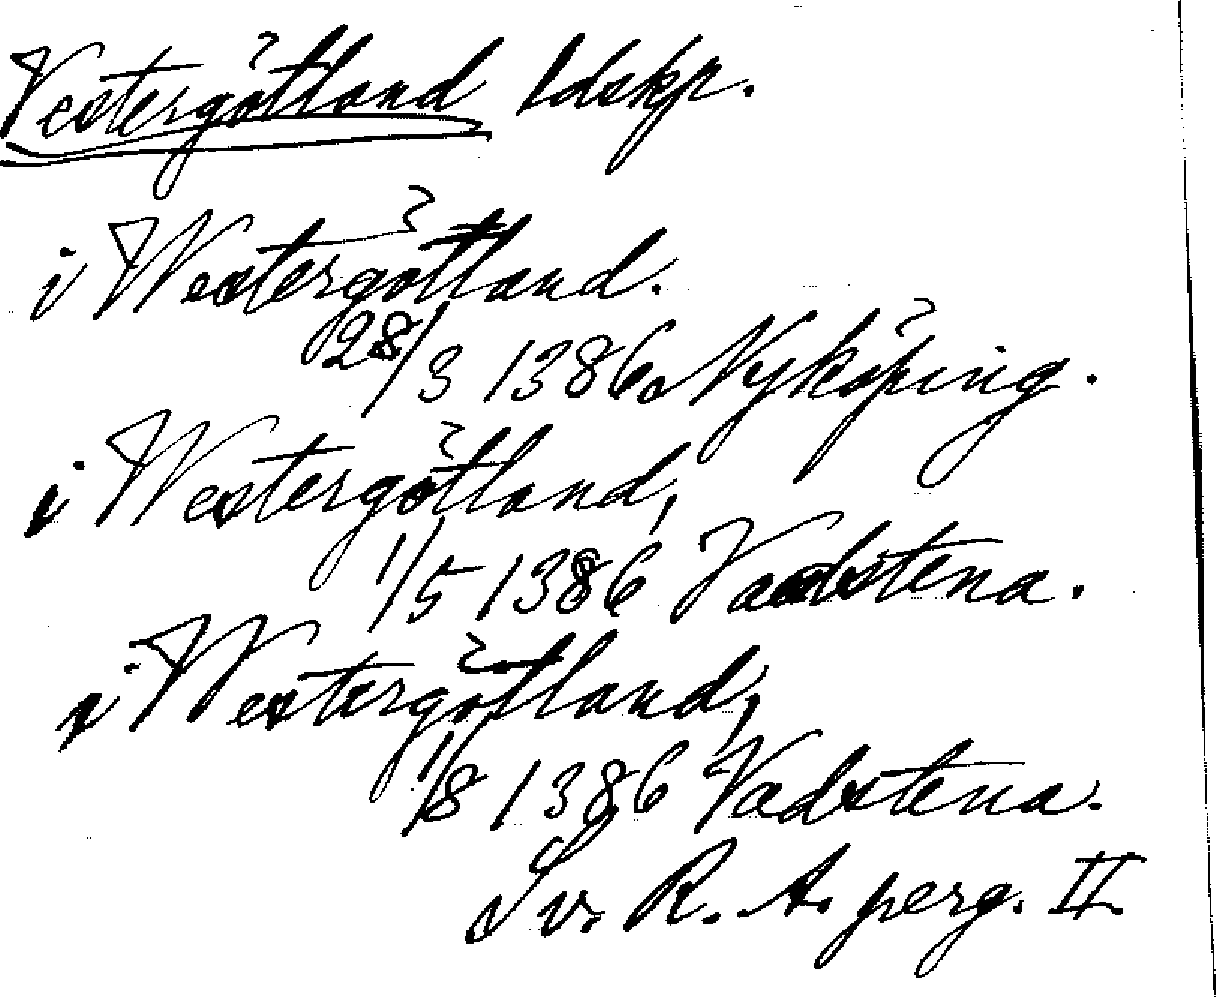 Vestergötland ldskp.
i Westergötland.
28/3 1386. Nyköping.
i Westergötland,
1/5 1386 Vadstena.
i Westergötland,
1/8 1386 Vadstena.
Sv. R. A. perg. II.